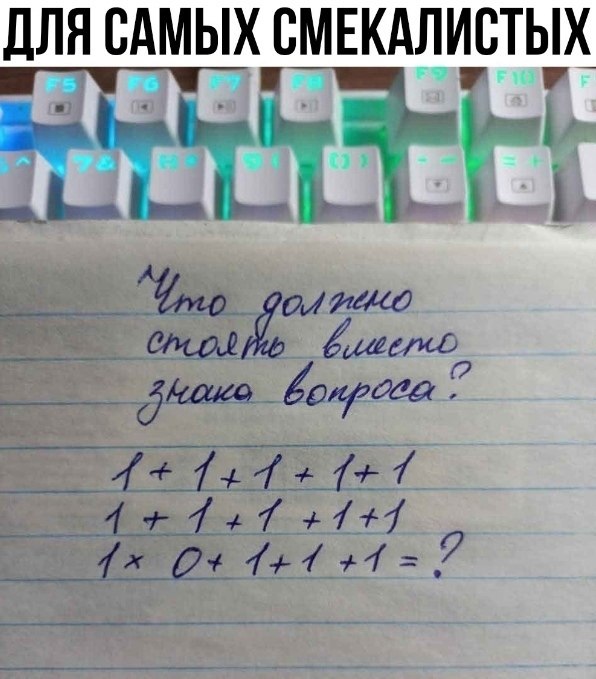 ДЛЯ САМЫХ СМЕКАЛИСТЫХ
F5 F6 F7 F8 F9 F10 F
^ 7& 8* 9( 0) - - = +
Что должно
стоять вместо
знака вопроса?
1 + 1 + 1 + 1 + 1
1 + 1 + 1 + 1 + 1
1 × 0 + 1 + 1 + 1 = ?